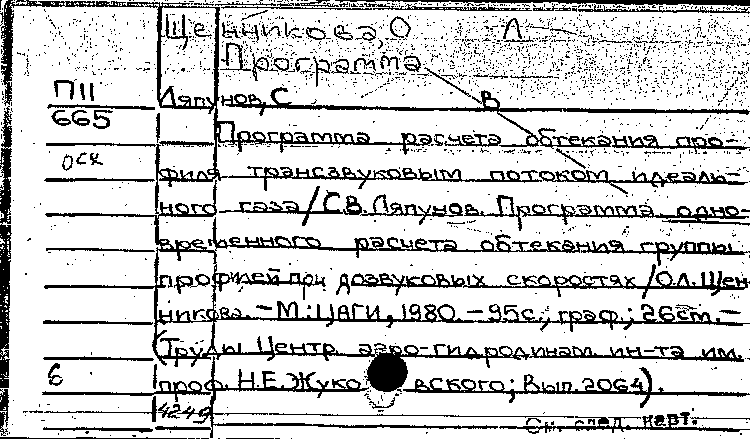 Щенникова, О Л
Программа
П11 Ляпунов, С В
665 Программа расчета обтекания про-
оск филя трансзвуковым потоком идеаль-
ного газа/С.В.Ляпунов. Программа одно-
временного расчета обтекания группы
профилей при дозвуковых скоростях/О.Л.Щен
никова. – М.: ЦАГИ, 1980. – 95с., граф.; 26см. –
(Труды Центр. аэро-гидродинам. ин-та им.
6 проф. Н.Е.Жуковского; Вып. 2064).
4249 См. след. карт.